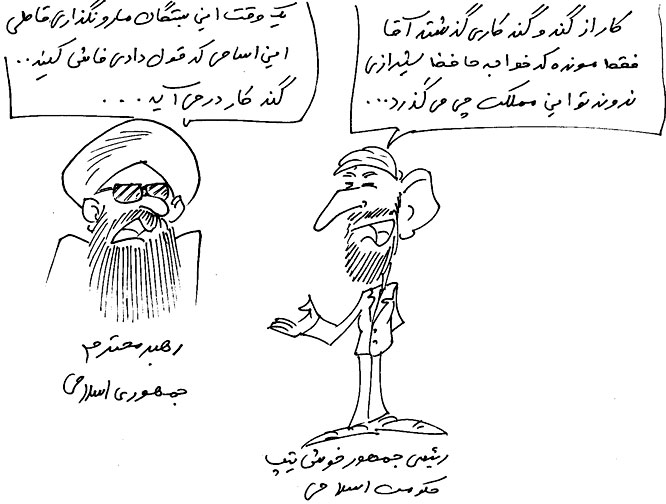 یک وقت این بستگان مارو نگذاری قاطی
این اسامی که قول دادی فاش کنید..
گند کار در می آید ...
کار از گند و گند کاری گذشته آقا
فقط مونده که خواجه حافظ شیرازی
ندونه تو این مملکت چی می گذرد...
رهبر محترم
جمهوری اسلامی
رئیس جمهور خوش تیپ
حکومت اسلامی